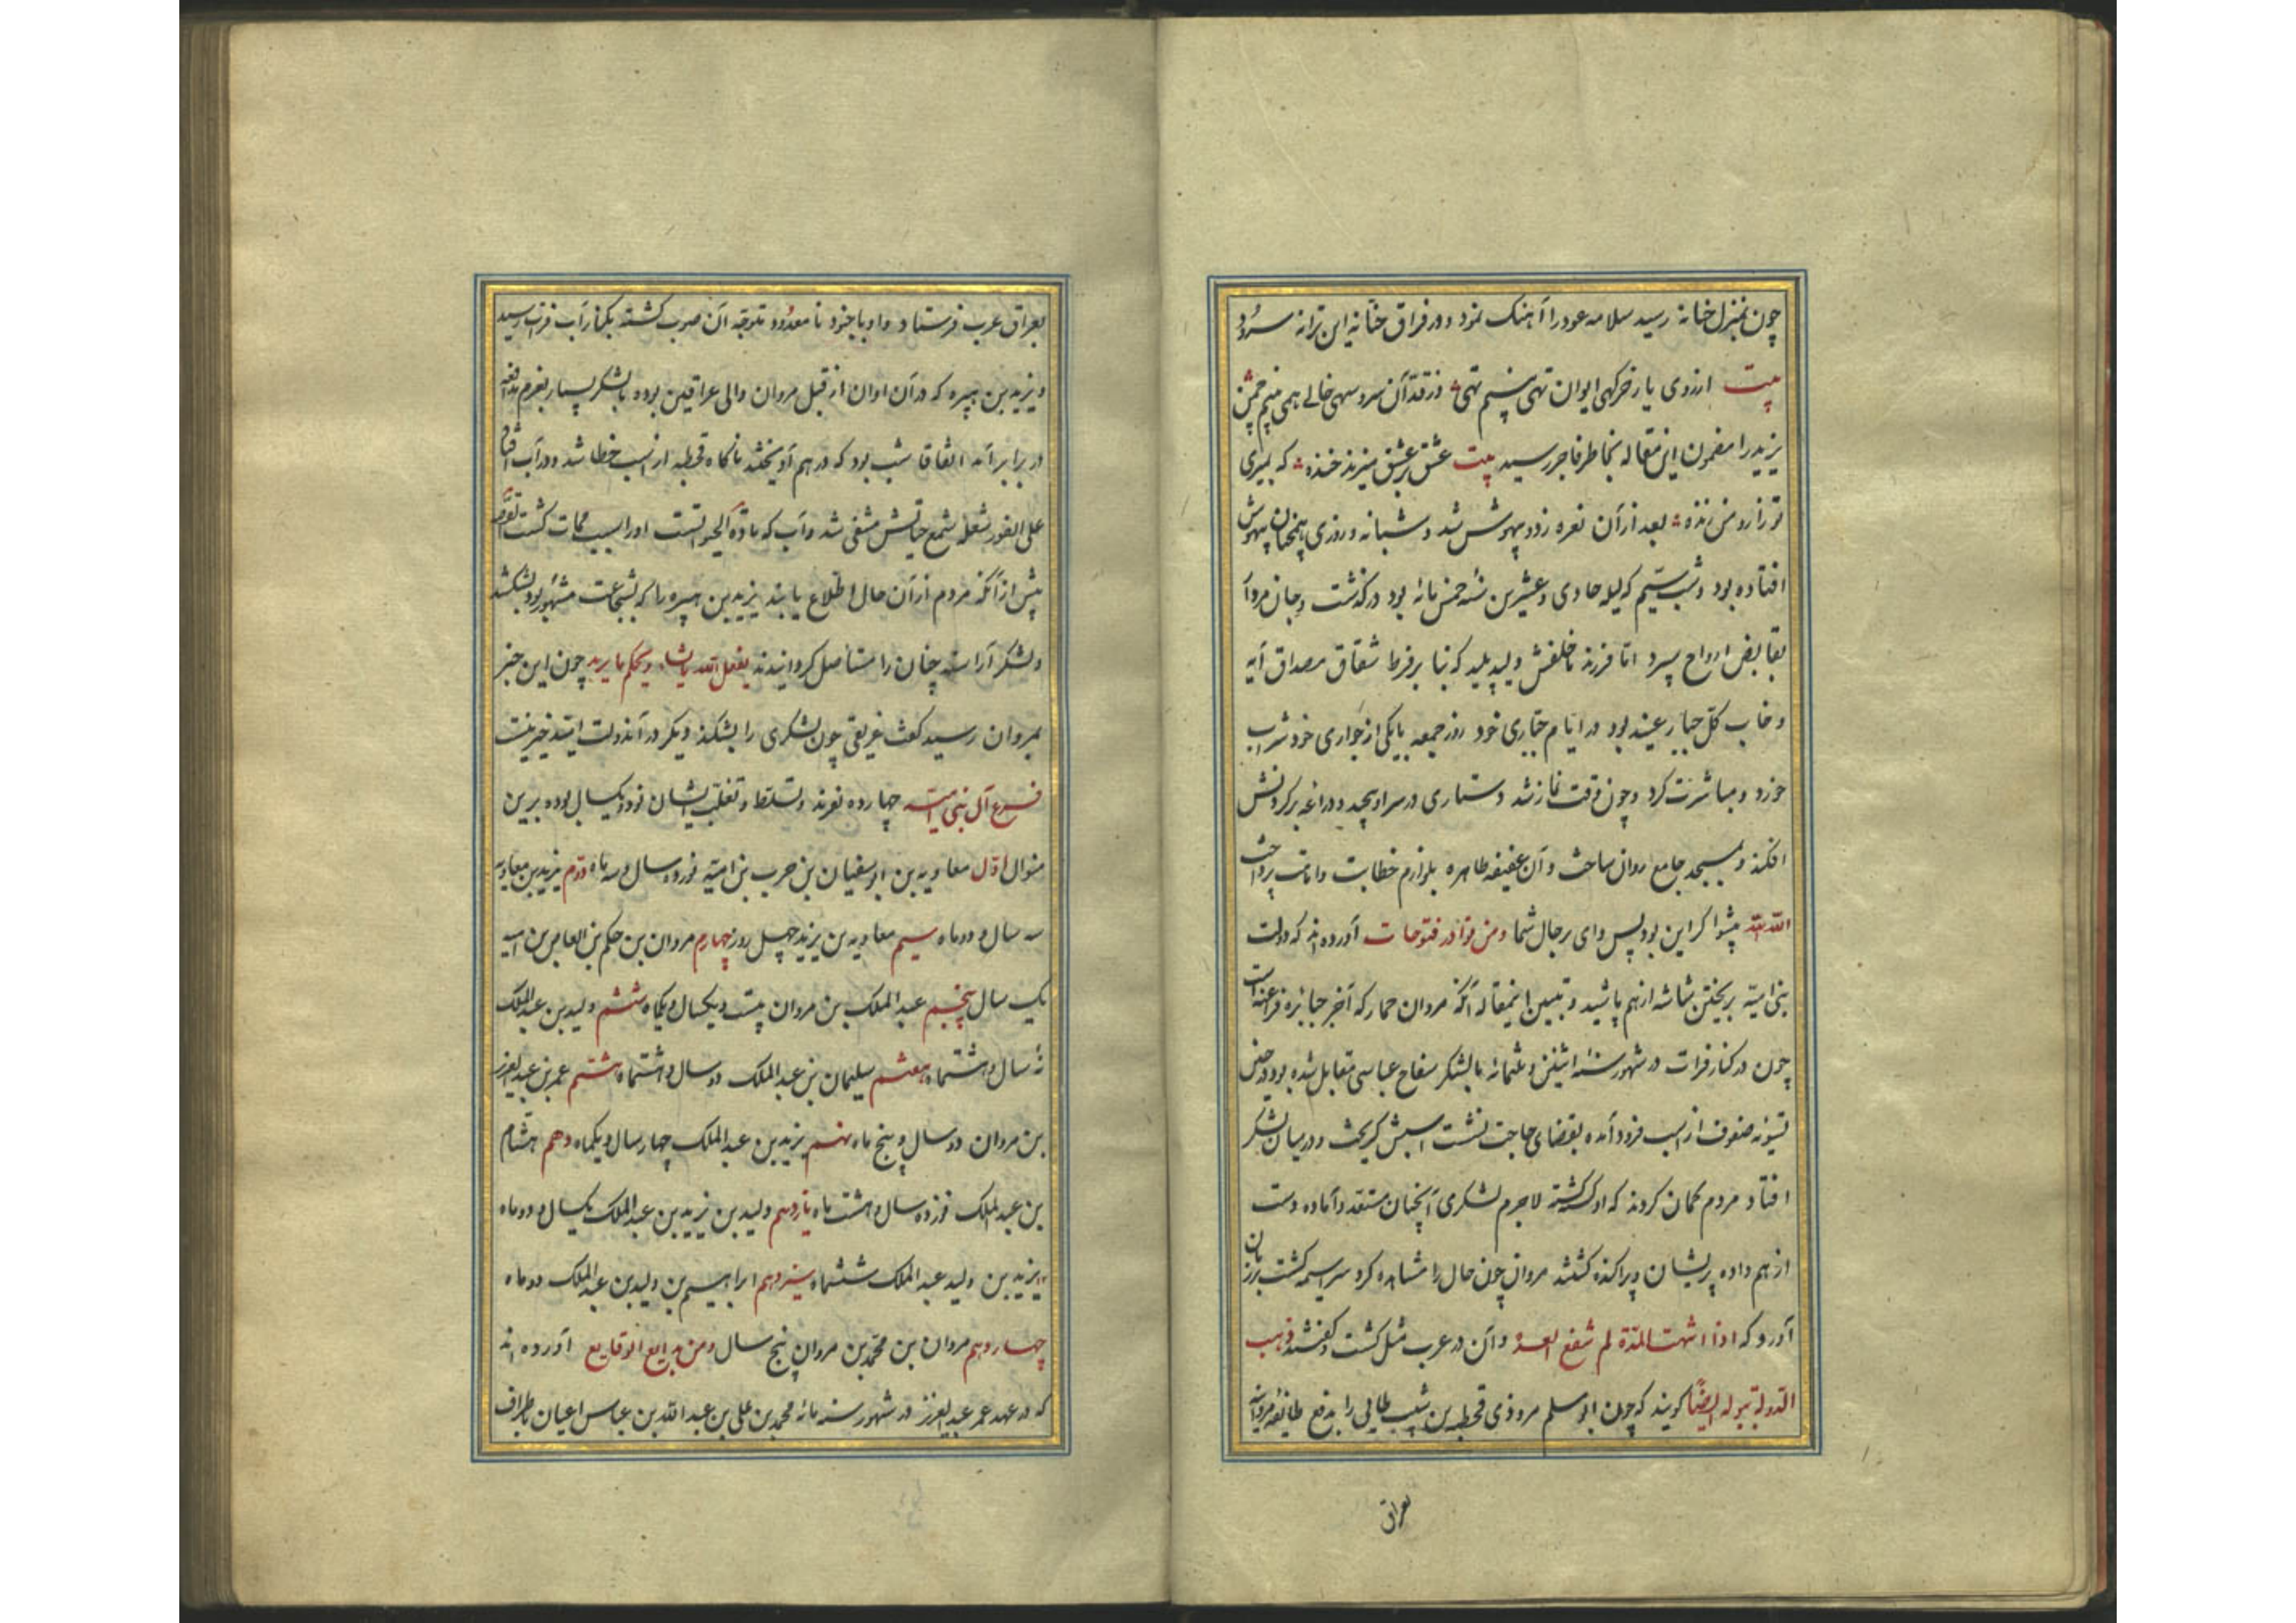 چون بمنزل خانه رسید سلامه عود را آهنک نمود و در فراق حنانه این ترانه سرود
بیت از روی یار خرکهی ایوان تهی بینم تهی وز قد آن سرو سهی خالی همی بینم چمن
یزید را مضمون این مقاله بخاطر فاجر رسید بیت عشق بر عشق میزند خنده که بمیری
تو زارو من زنده بعد از آن نعره زد و بیهوش شد و شبانه و روزی همچنان بیهوش
افتاده بود و شب سیم که لیله حادی و عشرین سنه خمس مائه بود درکذشت و جان مردار
بقابض ارواح سپرد اما فرزند ناخلفش ولید پلید که بنا بر فرط شقاق مصداق آیه
و خاب کل جبار عنید بود در ایام جباری خود روز جمعه با یکی از جواری خود شراب
خورد و مباشرت کرد و چون وقت نماز شد دستاری در سر او پیچید و دراعه بر کردنش
افکند و بمسجد جامع روان ساخت و آن عفیفه طاهره بلوازم خطابت و امامت پرداخت
الله الله پیشوا کر این بود پس وای بر حال شما و من نوادر فتوحات آورده اند که دولت
بنی امیه بریختن شاشه از هم پاشید و تبیین اینمقاله آنکه مروان حمار که آخر جبابره فراعنه است
چون در کنار فرات در شهور سنه اثنین و ثلثمائه با لشکر سفاح عباسی مقابل شده بود در حین
تسویه صفوف از اسب فرود آمده بقضای حاجت نشست اسبش کریخت و در میان لشکر
افتاد مردم کمان کردند که او کشته کشته لاجرم لشکری آنچنان مستعد و آماده دست
از هم داده پریشان و پراکنده کشتند مروان چون حال را مشاهده کرد سراسیمه کشت بر زبان
آورد که اذا انتهت المدة لم تنفع العدة و آن در عرب مثل کشت و کفتند ذهب
الدولة ببوله ایضا کویند که چون ابو مسلم مروذی قحطبه بن شبیب طائی را بدفع طائفه مروانیه
بعراق
بعراق عرب فرستاد و او با جنود نامعدود متوجه آن صوب کشته بکنار آب فرات رسید
و یزید بن هبیره که در آن اوان از قبل مروان والی عراقین بود با لشکر بسیار بعزم مدافعه
در برابر آمد اتفاقا شب بود که در هم آویختند ناکاه قحطبه از اسب خطا شد و در آب افتاد
علی الفور شعله شمع حیاتش منطفی شد و آب که ماده الحیوانست او را سبب ممات کشت
پیش از آنکه مردم از آن حال اطلاع یابند یزید بن هبیره را که بشجاعت مشهور بود بشکستند
و لشکر آراسته چنان را مستاصل کردانیدند یفعل الله ما یشاء و یحکم ما یرید چون این خبر
بمروان رسید کفت غریقی چون لشکری را بشکند دیکر در آن دولت امید خیر نیست
فرع آل بنی امیه چهارده نفرند و تسلط و تغلب ایشان نود و یکسال بوده برین
منوال اول معاویه بن ابو سفیان بن حرب بن امیه نوزده سال و سه ماه دوم یزید بن معاویه
سه سال و دو ماه سیم معاویه بن یزید چهل روز چهارم مروان بن حکم بن العاص بن امیه
یک سال پنجم عبد الملک بن مروان بیست و یکسال و یکماه ششم ولید بن عبد الملک
نه سال و هشتماه هفتم سلیمان بن عبد الملک دو سال و هشتماه هشتم عمر بن عبد العزیز
بن مروان دو سال و پنج ماه نهم یزید بن عبد الملک چهار سال و یکماه دهم هشام
بن عبد الملک نوزده سال و هشت ماه یازدهم ولید بن یزید بن عبد الملک یکسال و دو ماه
یزید بن ولید عبد الملک ششماه سیزدهم ابراهیم بن ولید بن عبد الملک دو ماه
چهاردهم مروان بن محمد بن مروان پنج سال و من بدایع الوقایع آورده اند
که در عهد عمر عبد العزیز در شهور سنه مائه محمد بن علی بن عبد الله بن عباس اعیان باطراف